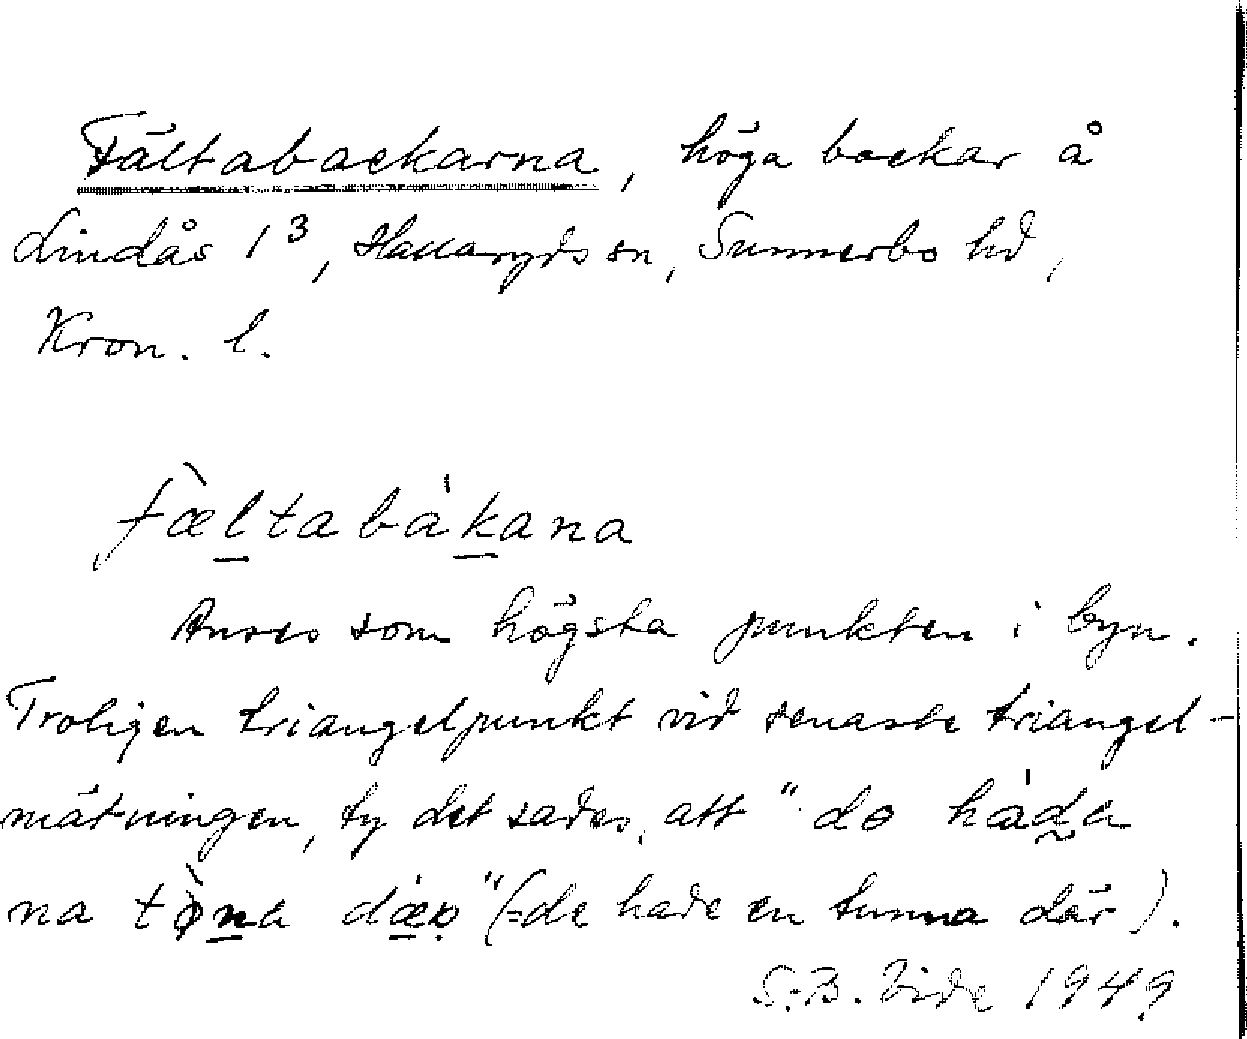 Fältabackarna, höga backar å
Lindås 1³, Hallaryds sn, Sunnerbo hd,
Kron. l.
fæ̀ltabákana
Anses som högsta punkten i byn.
Troligen triangelpunkt vid senaste triangel-
mätningen, ty det sades, att "do háda
na tǿ̀na dǽꝛ" (= de hade en tunna där).
S-B. Vide 1949